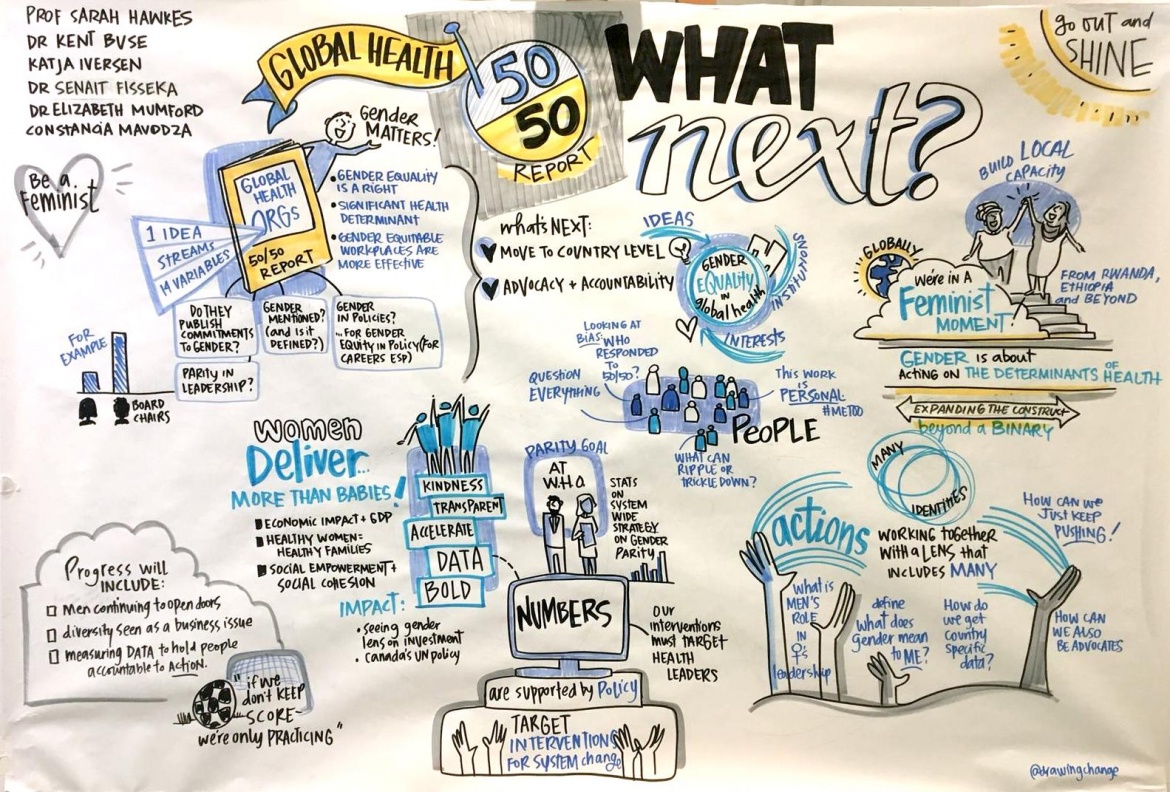 PROF SARAH HAWKES
DR KENT BUSE
KATJA IVERSEN
DR SENAIT FISSEKA
DR ELIZABETH MUMFORD
CONSTANCIA MAVODZA
GLOBAL HEALTH
50
50
REPORT
WHAT
next?
go out and
SHINE
Be a
Feminist
Gender
MATTERS!
GLOBAL
HEALTH
ORGs
50/50
REPORT
1 IDEA
STREAMS
14 VARIABLES
• GENDER EQUALITY
IS A RIGHT
• SIGNIFICANT HEALTH
DETERMINANT
• GENDER EQUITABLE
WORKPLACES ARE
MORE EFFECTIVE
DO THEY
PUBLISH
COMMITMENTS
TO GENDER?
GENDER
MENTIONED?
(and is it
DEFINED?)
GENDER
IN POLICIES?
...FOR GENDER
EQUITY IN POLICY (FOR
CAREERS ESP)
PARITY IN
LEADERSHIP?
FOR
EXAMPLE
BOARD
CHAIRS
what's NEXT:
MOVE TO COUNTRY LEVEL
ADVOCACY + ACCOUNTABILITY
IDEAS
INSTITUTIONS
INTERESTS
GENDER
EQUALITY
IN
global health
BUILD LOCAL
CAPACITY
GLOBALLY
we're in a
Feminist
MOMENT!
FROM RWANDA,
ETHIOPIA
and BEYOND
GENDER is about
ACTING ON THE DETERMINANTS OF HEALTH
EXPANDING THE CONSTRUCT
beyond a BINARY
MANY
IDENTITIES
LOOKING AT
BIAS: WHO
RESPONDED
TO
50/50?
QUESTION
EVERYTHING
THIS WORK
IS
PERSONAL
#METOO
PEOPLE
WHAT CAN
RIPPLE OR
TRICKLE DOWN?
women
Deliver...
MORE THAN BABIES!
ECONOMIC IMPACT + GDP
HEALTHY WOMEN =
HEALTHY FAMILIES
SOCIAL EMPOWERMENT +
SOCIAL COHESION
IMPACT:
• seeing gender
lens on investment
• Canada's UN policy
KINDNESS
TRANSPARENT
ACCELERATE
DATA
BOLD
PARITY GOAL
AT
WHO
STATS
ON
SYSTEM
WIDE
STRATEGY
ON GENDER
PARITY
NUMBERS
our
interventions
must TARGET
HEALTH
LEADERS
are supported by Policy
TARGET
INTERVENTIONS
FOR SYSTEM change
Progress will
INCLUDE:
men continuing to open doors
diversity seen as a business issue
measuring DATA to hold people
accountable to ACTION.
"if we
don't KEEP
SCORE-
we're only PRACTICING"
actions
WORKING together
WITH a LENS that
INCLUDES MANY
HOW CAN WE
JUST KEEP
PUSHING!
WHAT is
MEN'S
ROLE
IN
♀'s
leadership
define
what does
gender mean
to ME?
HOW do
we get
country
specific
data?
HOW CAN
WE ALSO
BE ADVOCATES
@drawingchange